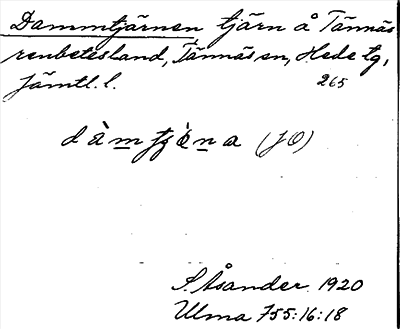 Dammtjärnen tjärn å Tännäs
renbetesland, Tännäs sn, Hede tg,
Jämtl. l.
265
dàmtjæ̀na (JO)
S. Åsander. 1920
Ulma 755:16:18